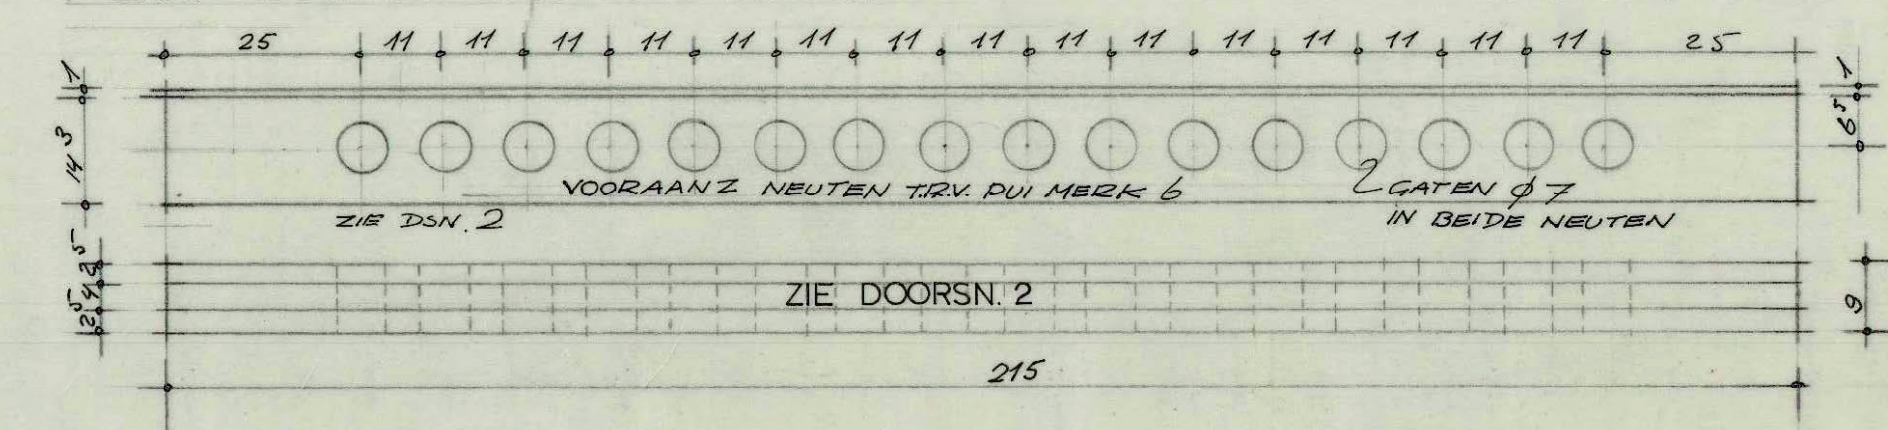 25 11 11 11 11 11 11 11 11 11 11 11 11 11 11 11 25
1
14³
1
6⁵
VOORAANZ NEUTEN T.R.V. PUI MERK 6
2 GATEN ø 7
ZIE DSN. 2
IN BEIDE NEUTEN
2⁵ 4 2⁵
ZIE DOORSN. 2
9
215